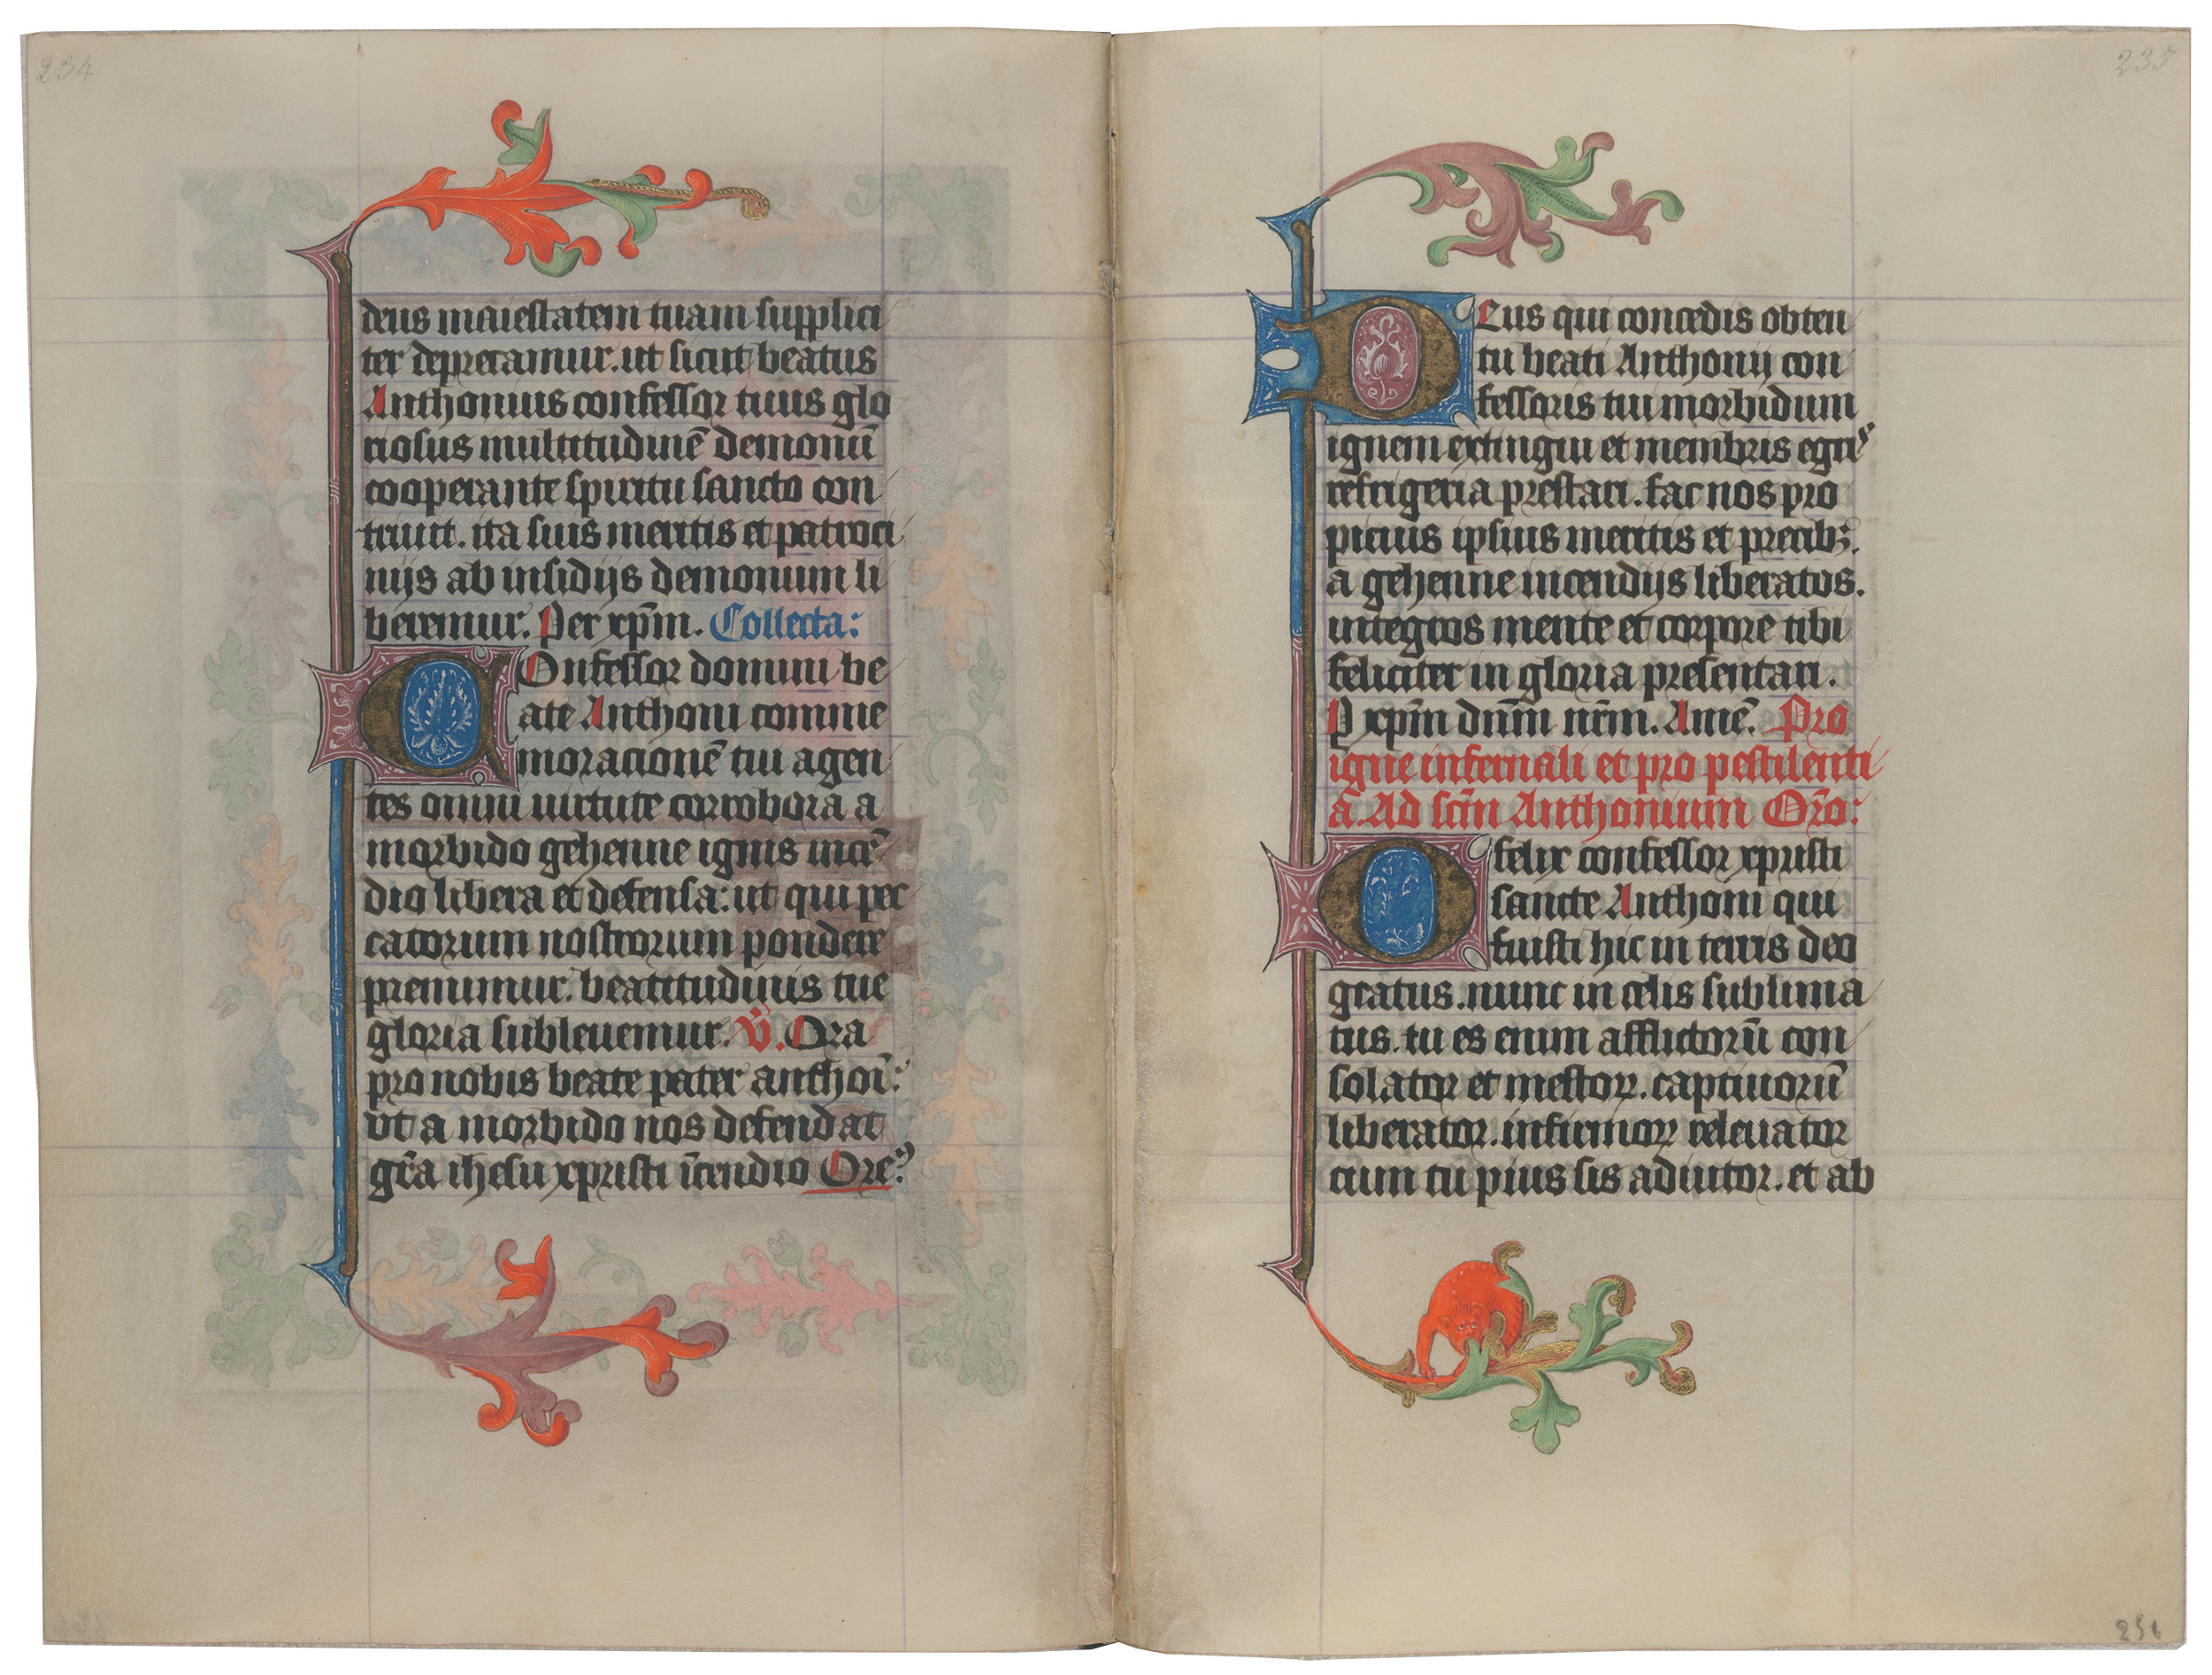 234
deus maiestatem tuam supplici
ter deprecamur. ut sicut beatus
Anthonius confessor tuus glo
riosus multitudinē demonū
cooperante spiritu sancto con
triuit. ita suis meritis et patroci
nijs ab insidijs demonum li
beremur. Per xp̄m. Collecta:
COnfessor domini be
ate Anthoni comme
moracionē tui agen
tes omni uirtute corrobora a
morbido gehenne ignis incē
dio libera et defensa: ut qui pec
catorum nostrorum pondere
premimur. beatitudinis tue
gloria subleuemur. V̄. Ora
pro nobis beate pater anthoī:
vt a morbido nos defendat
gr̄a ihesu xpristi īcendio Ore᷒
235
DEus qui concedis obten
tu beati Anthonij con
fessoris tui morbidum
ignem extingui et membris egris
refrigeria prestari. fac nos pro
picius ipsius meritis et precibꝫ.
a gehenne incendijs liberatos.
integros mente et corpore tibi
feliciter in gloria presentari.
P xp̄m dn̄m nr̄m. Amē. Pro
igne infernali et pro pestilenti
a. Ad sc̄m Anthonium Or̄o:
O felix confessor xpristi
sancte Anthoni qui
fuisti hic in terris deo
gratus. nunc in celis sublima
tus. tu es enim afflictorū con
solator et mestoꝝ. captiuorū
liberator. infirmoꝝ releuator
cum tu pius sis adiutor. et ab